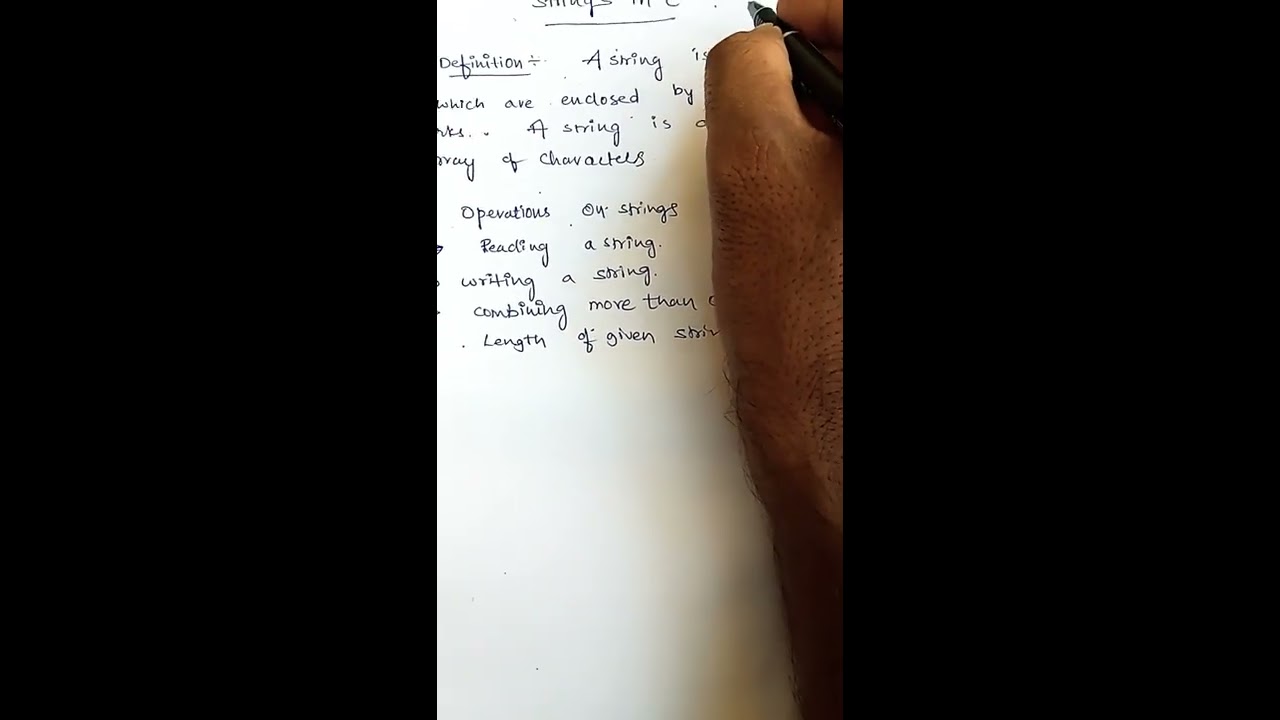 Strings in C
Definition ÷ A string is
which are enclosed by
rks. A string is
rray of characters
Operations on strings
Reading a string.
writing a string.
combining more than
Length of given strin